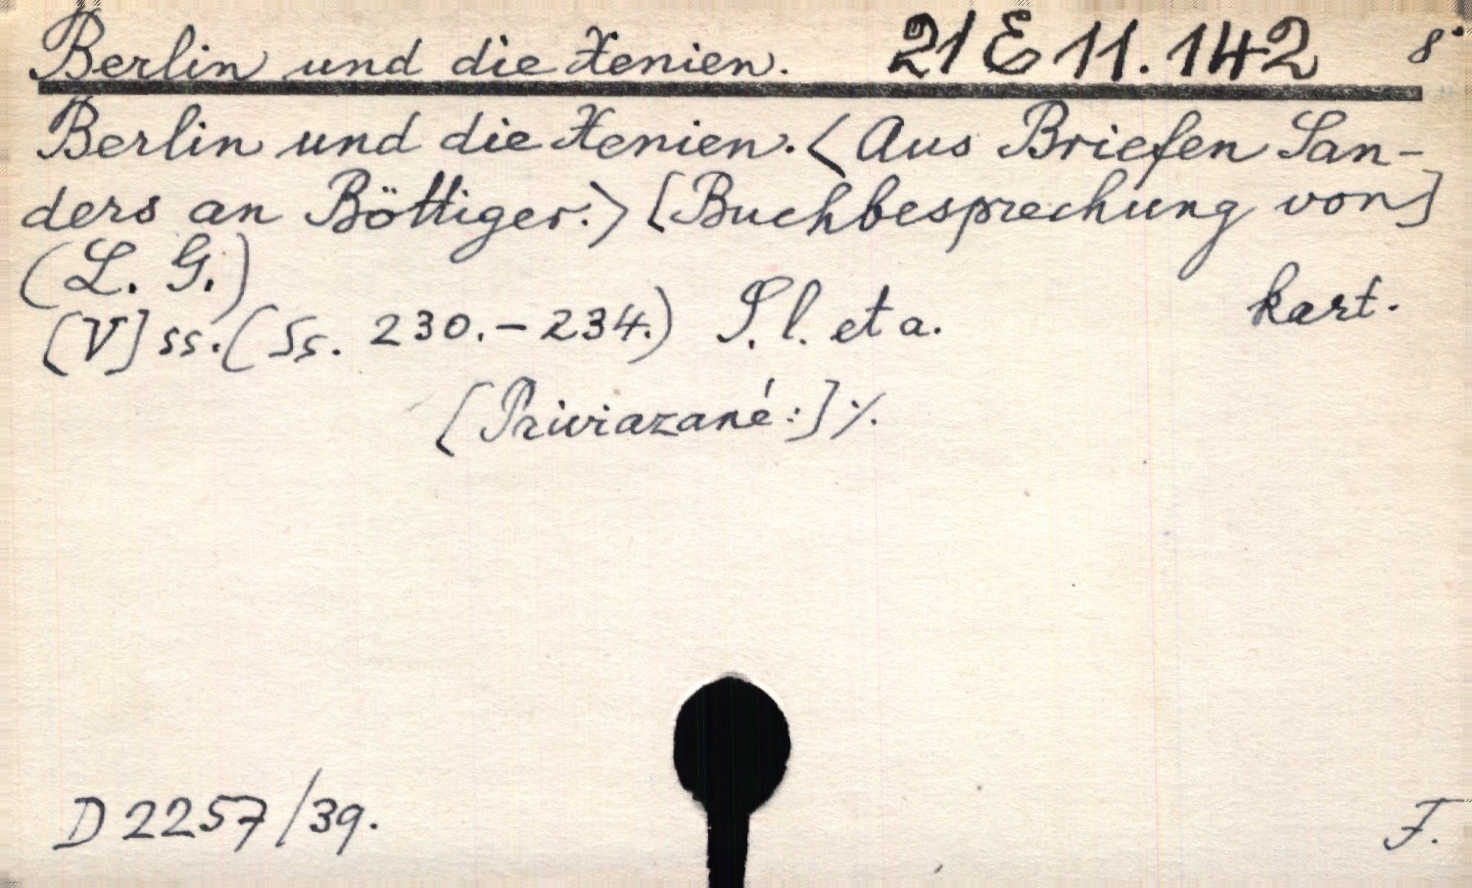 Berlin und die Xenien. 21 E 11.142 8°
Berlin und die Xenien. <Aus Briefen San-
ders an Böttiger.> [Buchbesprechung von]
(L. G.)
kart.
[V] ss. (Ss. 230.-234.) S. l. et a.
[Priviazané:] ·/.
D 2257/39.
F.